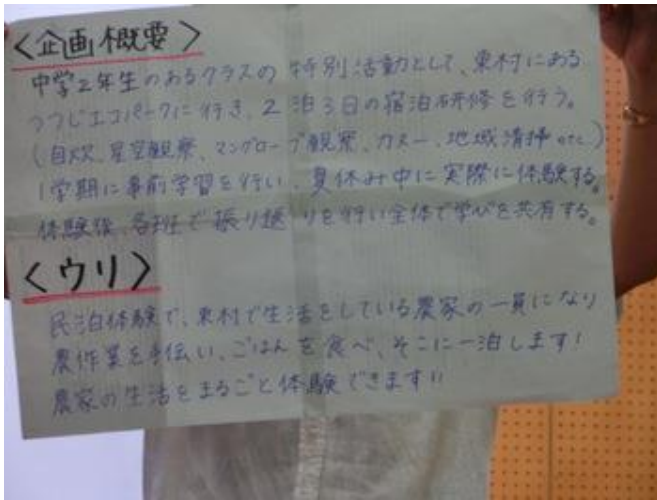 <企画概要>
中学2年生のあるクラスの特別活動として、東村にある
つつじエコパークに行き、2泊3日の宿泊研修を行う。
(自炊、星空観察、マングローブ観察、カヌー、地域清掃 etc)
1学期に事前学習を行い、夏休み中に実際に体験する。
体験後、各班で振り返りを行い全体で学びを共有する。
<ウリ>
民泊体験で、東村で生活をしている農家の一員になり
農作業を手伝い、ごはんを食べ、そこに一泊します!
農家の生活をまるごと体験できます!!